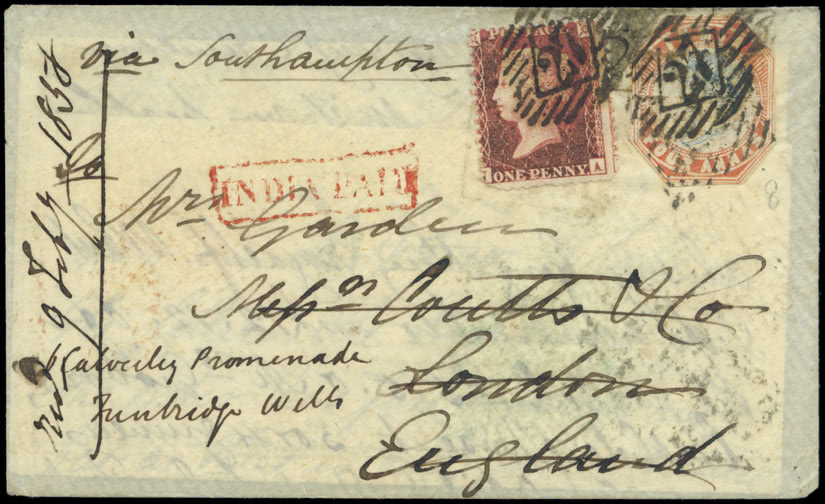 via Southampton
POSTAGE
ONE PENNY
A
FOUR ANNAS
INDIA PAID
To
Mrs Garden
Messrs Coutts & Co
London
England
6 Calverley Promenade
Tunbridge Wells
recd 9 Feby 1858
8